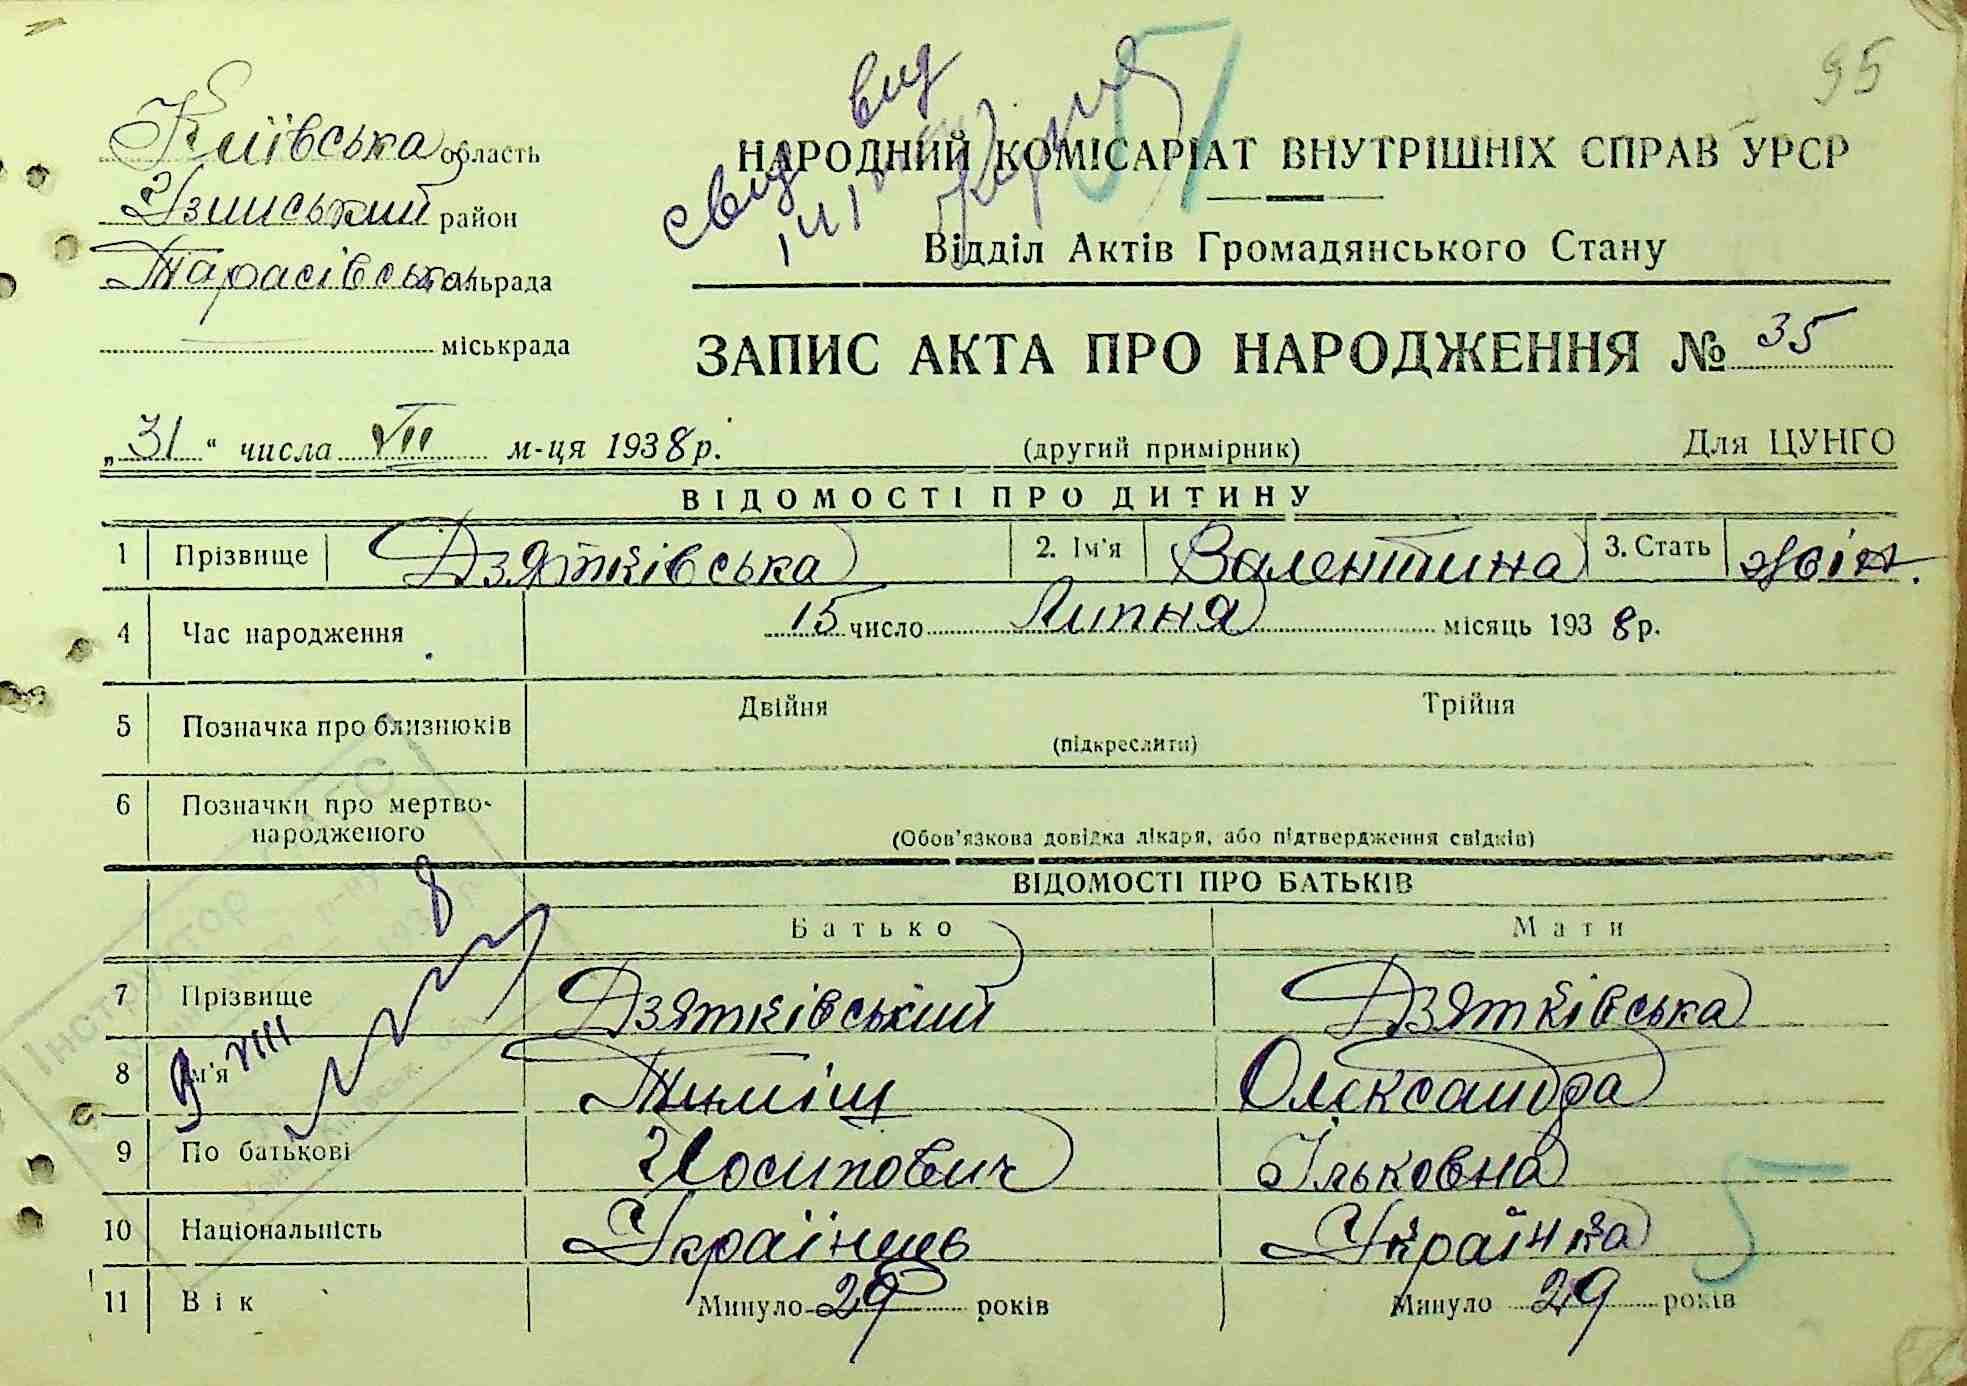 95
Київська область
Узинський район
Тарасівська сільрада
міськрада
НАРОДНИЙ КОМІСАРІАТ ВНУТРІШНІХ СПРАВ УРСР
Відділ Актів Громадянського Стану
ЗАПИС АКТА ПРО НАРОДЖЕННЯ № 35
„31“ числа VII м-ця 1938 р.
(другий примірник)
Для ЦУНГО
ВІДОМОСТІ ПРО ДИТИНУ
1 Прізвище Дзятківська 2. Ім'я Валентина 3. Стать жін.
4 Час народження 15 число Липня місяць 1938 р.
5 Позначка про близнюків Двійня Трійня
(підкреслити)
6 Позначки про мертво-
народженого
(Обов'язкова довідка лікаря, або підтвердження свідків)
ВІДОМОСТІ ПРО БАТЬКІВ
Батько Мати
7 Прізвище Дзятківський Дзятківська
8 Ім'я Тиміш Олександра
9 По батькові Йосипович Ільковна
10 Національність Українець Українка
11 Вік Минуло 29 років Минуло 29 років
Інструктор
9 VIII
8
5